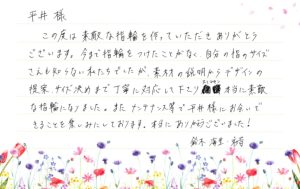 平井 様
この度は素敵な指輪を作っていただきありがとう
ございます。今まで指輪をつけたことがなく、自分の指のサイズ
さえも知らない私たちでしたが、素材の説明からデザインの
提案、サイズ決めまで丁寧に対応して下さり 本当に素敵
な指輪になりました。また メンテナンス等で平井様にお会いで
きることを楽しみにしております。本当に ありがとうございました!
鈴木